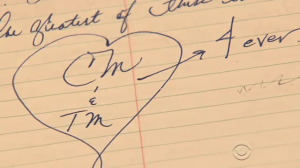 the greatest of these
CM → 4 ever
&
TM